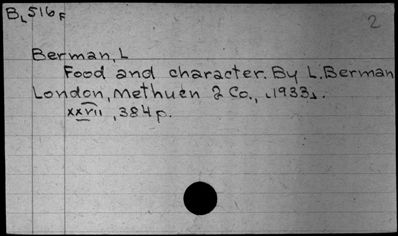 BL516F
2
Berman, L
Food and character. By L. Berman
London, Methuen & Co., [1933].
xxvii, 384 p.